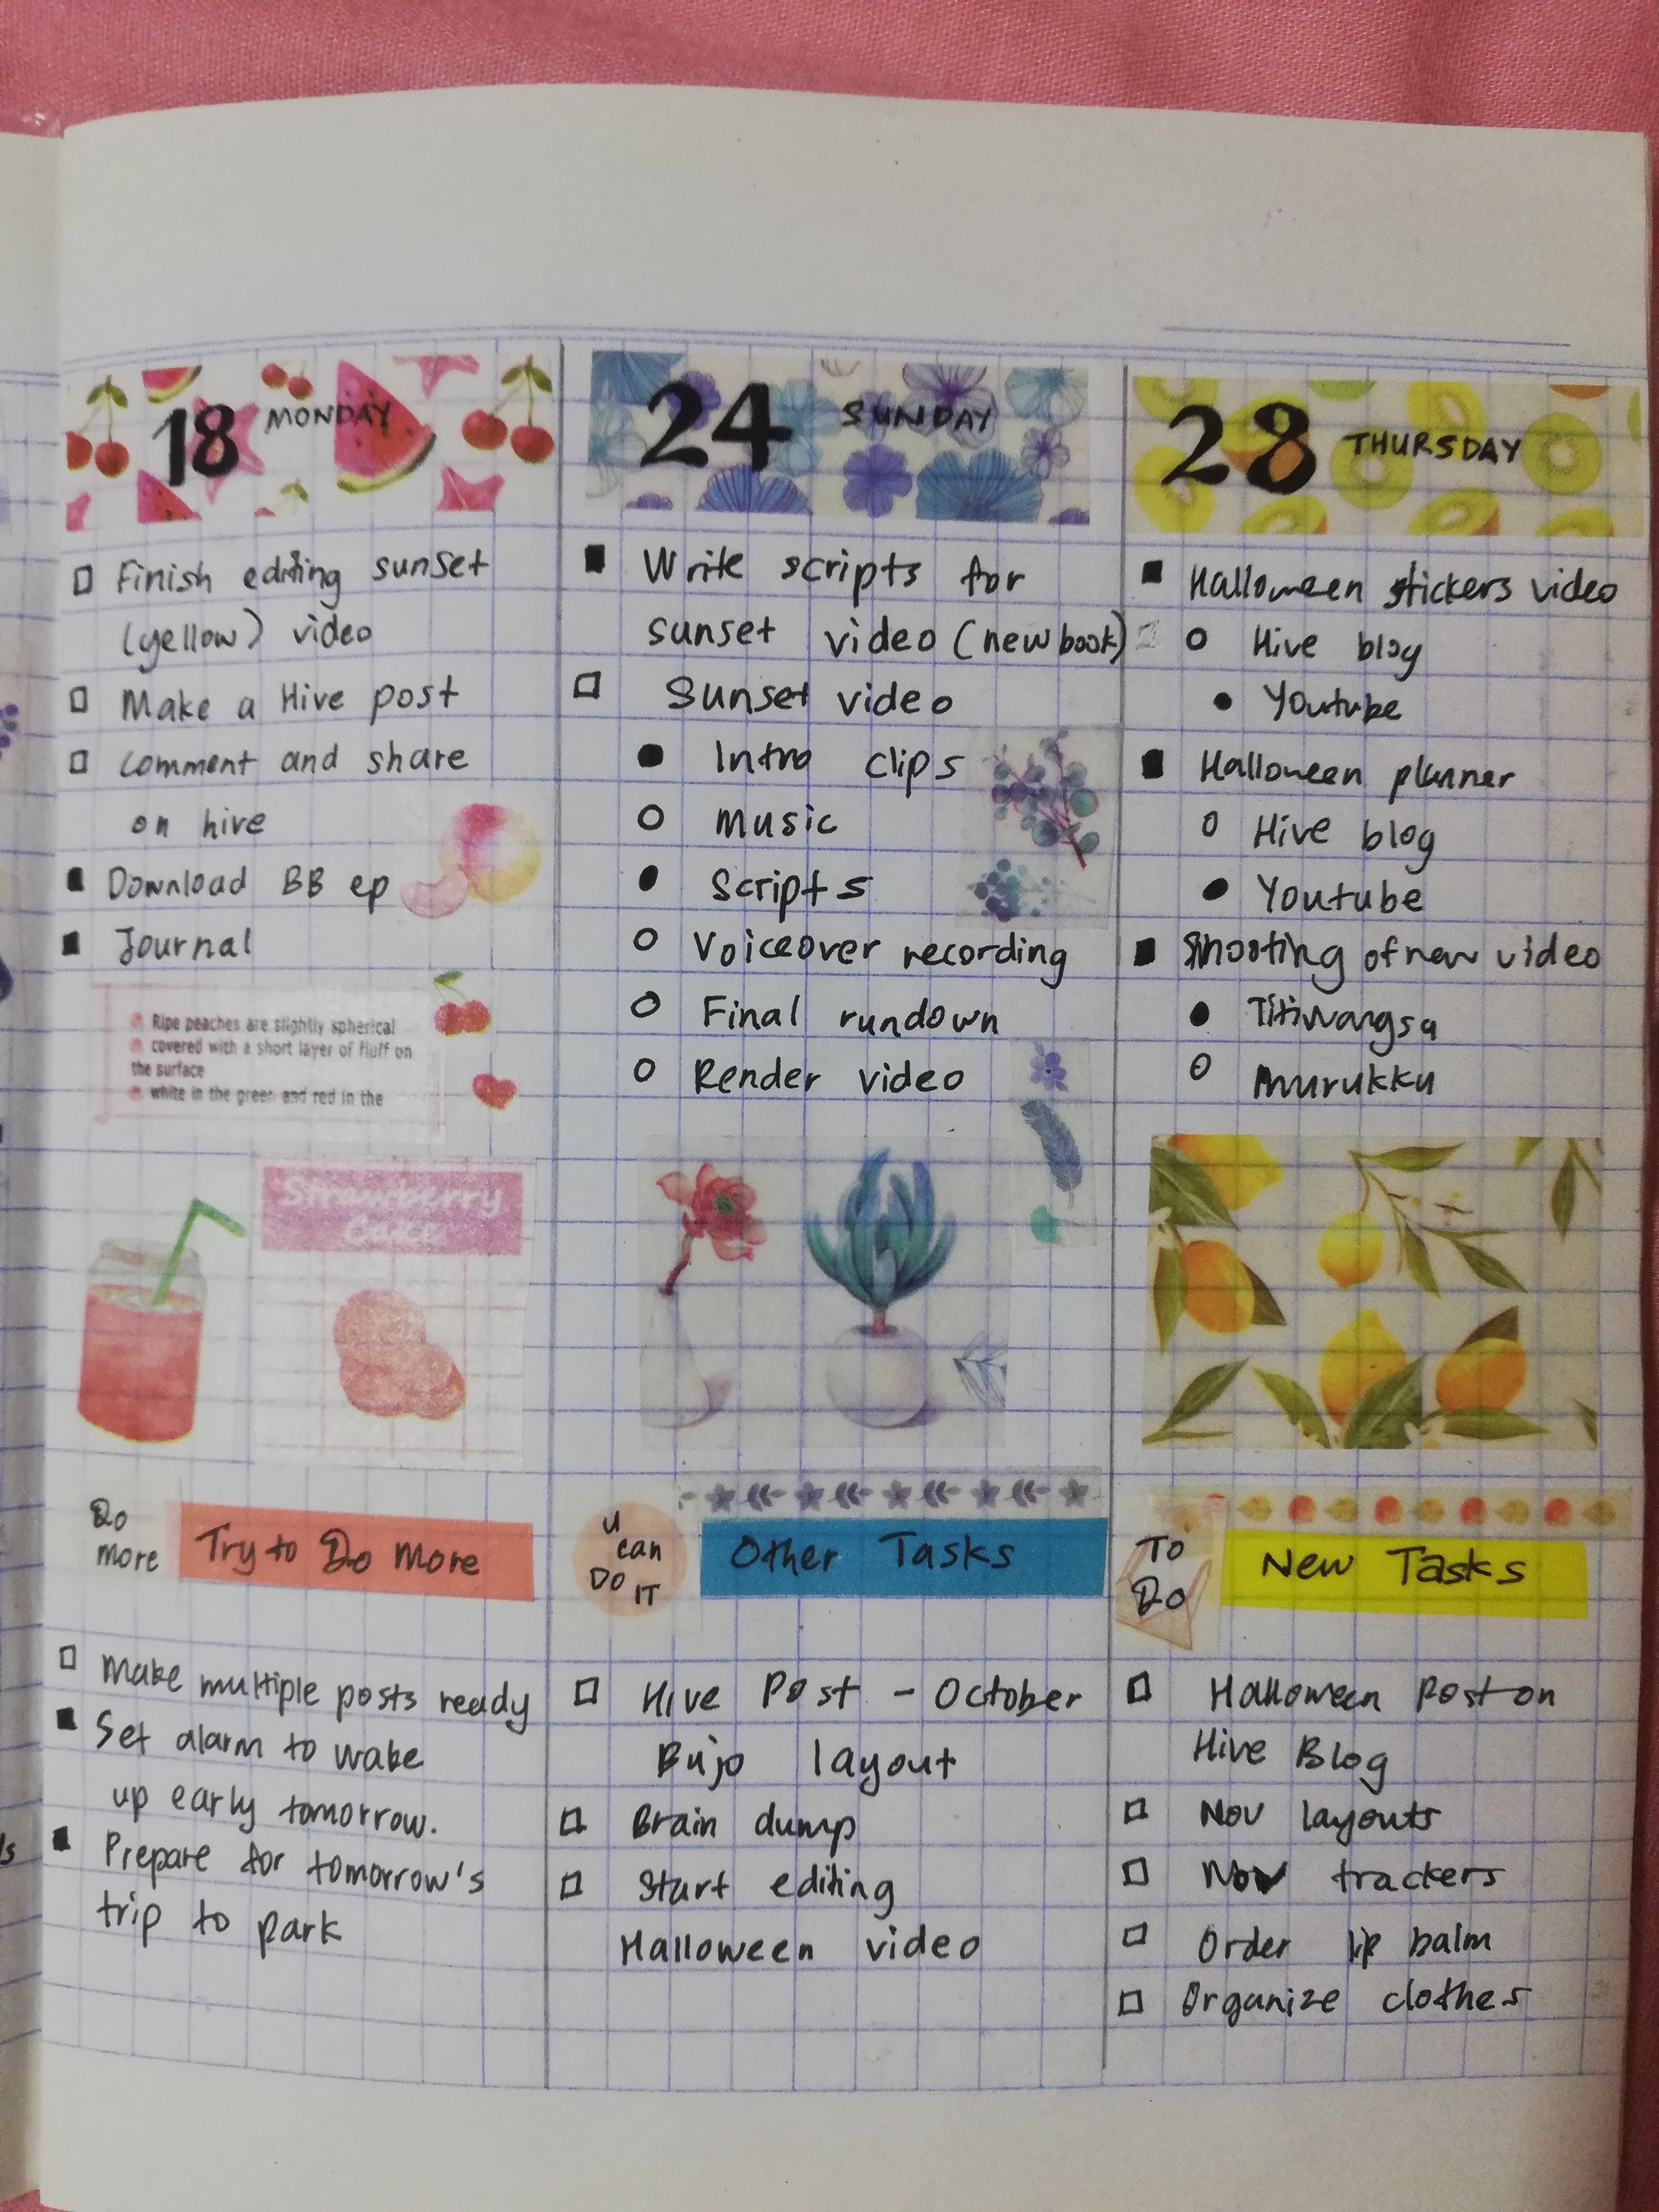 18 MONDAY
□ Finish editing sunset
(yellow) video
□ Make a Hive post
□ comment and share
on hive
■ Download BB ep
■ Journal
Ripe peaches are slightly spherical
covered with a short layer of fluff on
the surface
white in the green and red in the
Strawberry
Cake
Do
more
Try to Do more
□ Make multiple posts ready
■ Set alarm to wake
up early tomorrow.
■ Prepare for tomorrow's
trip to park
24 SUNDAY
■ Write scripts for
sunset video (new book)
□ Sunset video
● Intro clips
○ Music
● Scripts
○ Voiceover recording
○ Final rundown
○ Render video
u
can
DO IT
Other Tasks
□ Hive Post - October
Bujo layout
□ Brain dump
□ Start editing
Halloween video
28 THURSDAY
■ Halloween stickers video
○ Hive blog
● Youtube
■ Halloween planner
○ Hive blog
● Youtube
■ Shooting of new video
● Titiwangsa
○ Murukku
TO
Do
New Tasks
□ Halloween Post on
Hive Blog
□ Nov layouts
□ Nov trackers
□ Order lip balm
□ Organize clothes
ls